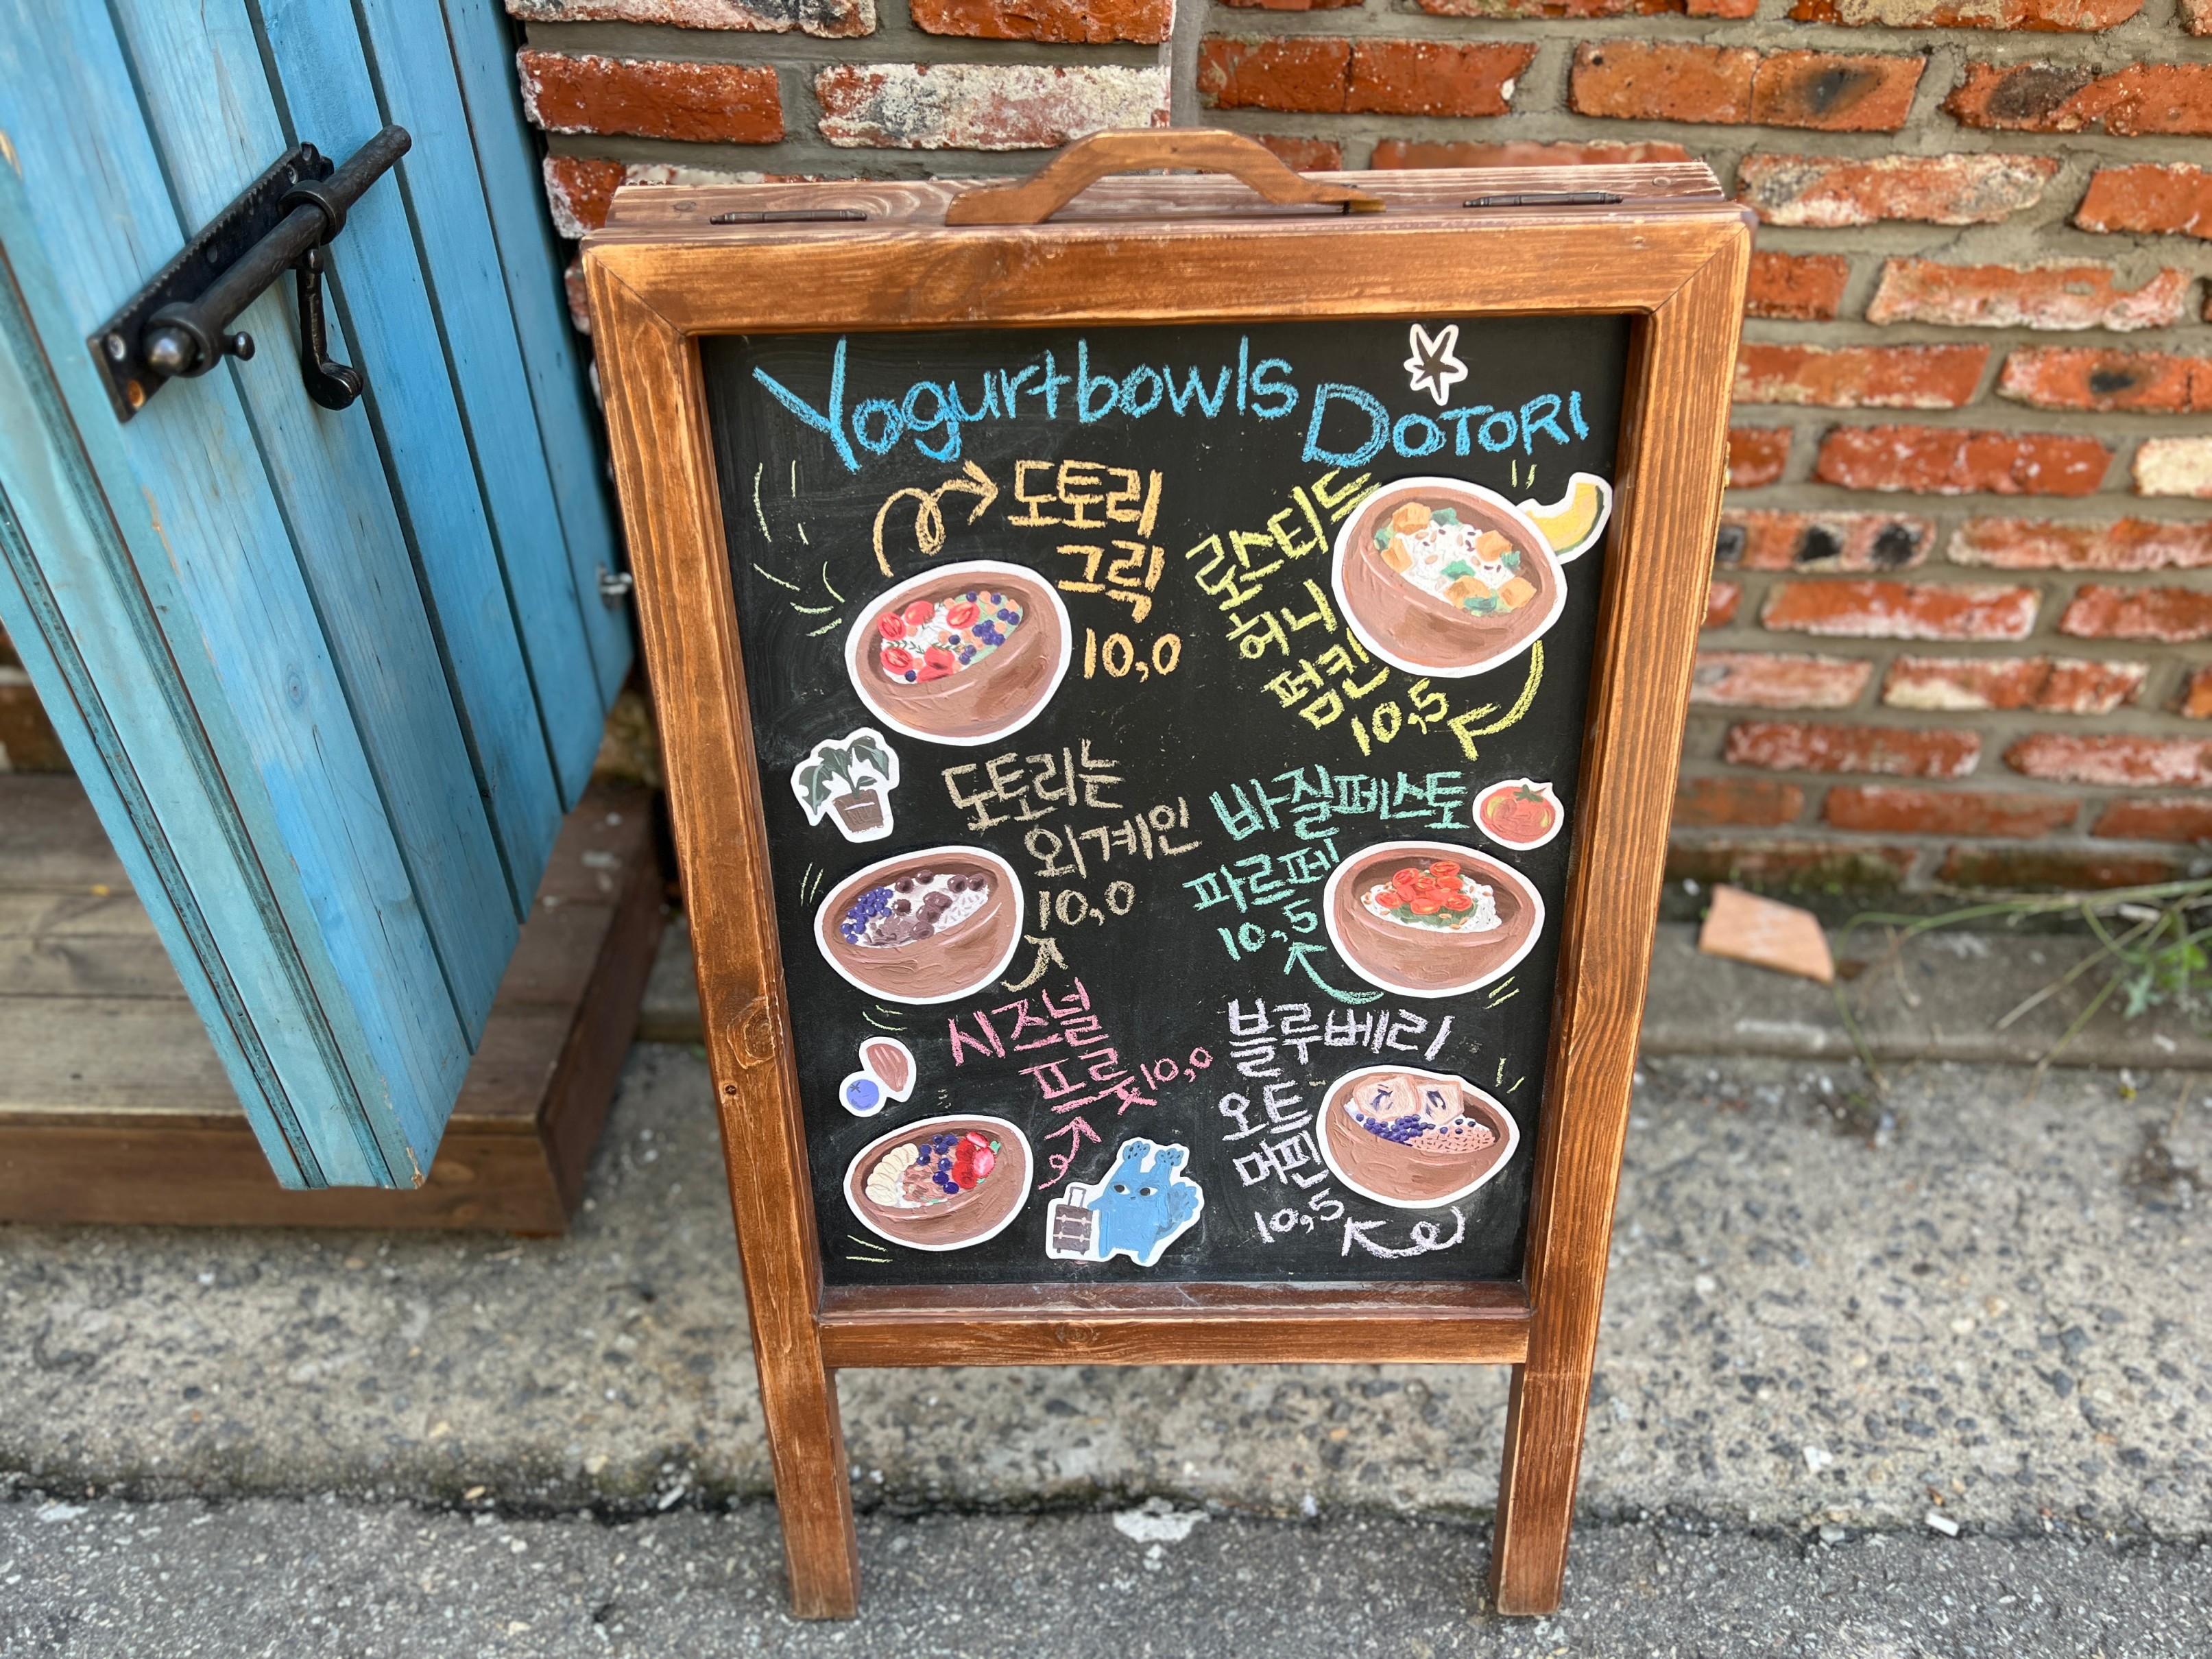 Yogurtbowls DOTORI
도토리
그릭
10,0
로스티드
허니
펌킨
10,5
도토리는
외계인
10,0
바질페스토
파르페
10,5
시즈널
프룻 10,0
블루베리
오트
머핀
10,5